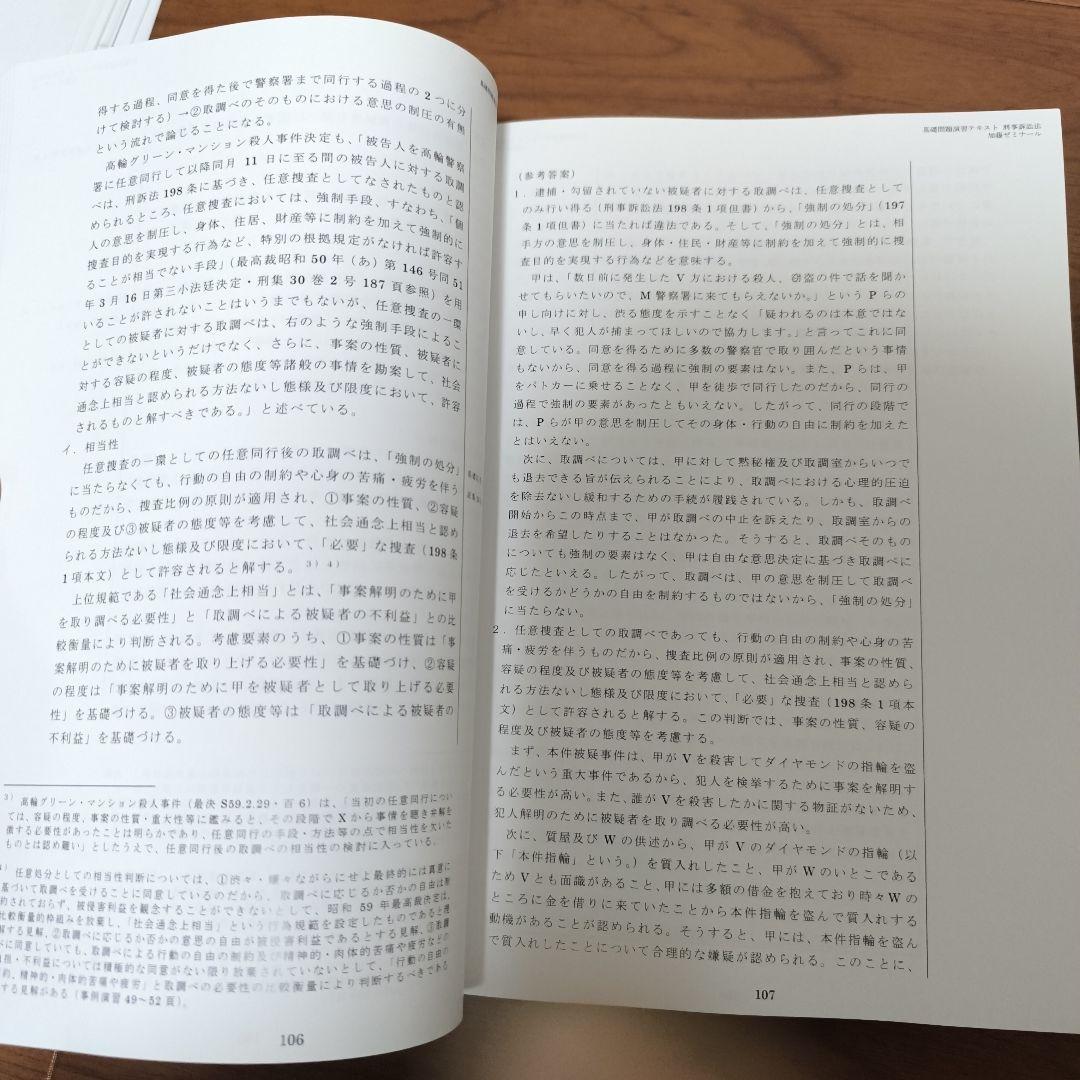 得する過程、同意を得た後で警察署まで同行する過程の2つに分
けて検討する)→②取調べのそのものにおける意思の制圧の有無
という流れで論じることになる。
高輪グリーン・マンション殺人事件決定も、「被告人を高輪警察
署に任意同行して以降同月 11 日に至る間の被告人に対する取調
べは、刑訴法 198 条に基づき、任意捜査としてなされたものと認
められるところ、任意捜査においては、強制手段、すなわち、「個
人の意思を制圧し、身体、住居、財産等に制約を加えて強制的に
捜査目的を実現する行為など、特別の根拠規定がなければ許容す
ることが相当でない手段」(最高裁昭和 50 年(あ)第 146 号同 51
年 3 月 16 日第三小法廷決定・刑集 30 巻 2 号 187 頁参照)を用
いることが許されないことはいうまでもないが、任意捜査の一環
としての被疑者に対する取調べは、右のような強制手段によるこ
とができないというだけでなく、さらに、事案の性質、被疑者に
対する容疑の程度、被疑者の態度等諸般の事情を勘案して、社会
通念上相当と認められる方法ないし態様及び限度において、許容
されるものと解すべきである。」と述べている。
イ.相当性
任意捜査の一環としての任意同行後の取調べは、「強制の処分」
に当たらなくても、行動の自由の制約や心身の苦痛・疲労を伴う
ものだから、捜査比例の原則が適用され、①事案の性質、②容疑
の程度及び③被疑者の態度等を考慮して、社会通念上相当と認め
られる方法ないし態様及び限度において、「必要」な捜査(198 条
1 項本文)として許容されると解する。3) 4)
上位規範である「社会通念上相当」とは、「事案解明のために甲
を取り調べる必要性」と「取調べによる被疑者の不利益」との比
較衡量により判断される。考慮要素のうち、①事案の性質は「事
案解明のために被疑者を取り上げる必要性」を基礎づけ、②容疑
の程度は「事案解明のために甲を被疑者として取り上げる必要
性」を基礎づける。③被疑者の態度等は「取調べによる被疑者の
不利益」を基礎づける。
3) 高輪グリーン・マンション殺人事件(最決 S59.2.29・百 6)は、「当初の任意同行につい
ては、容疑の程度、事案の性質・重大性等に鑑みると、その段階で X から事情を聴き弁解を
徴する必要性があったことは明らかであり、任意同行の手段・方法等の点で相当性を欠いた
ものとは認め難い」としたうえで、任意同行後の取調べの相当性の検討に入っている。
) 任意処分としての相当性判断については、①渋々・嫌々ながらにせよ最終的には真意に
基づいて取調べを受けることに同意しているのだから、取調べに応じるか否かの自由は制
約されておらず、被侵害利益を観念することができないとして、昭和 59 年最高裁決定は、
比較衡量的枠組みを放棄し、「社会通念上相当」という行為規範を設定したものであると理
解する見解、②取調べに応じるか否かの意思の自由が被侵害利益であるとする見解、③取調
べに同意していても、取調べによる行動の自由の制約及び精神的・肉体的苦痛や疲労などの
負担・不利益については積極的な同意がない限り放棄されていないとして、「行動の自由の
制約、精神的・肉体的苦痛や疲労」と取調べの必要性の比較衡量により判断するべきである
とする見解がある(事例演習 49~52 頁)。
106
基礎問題演習テキスト 刑事訴訟法
加藤ゼミナール
(参考答案)
1.逮捕・勾留されていない被疑者に対する取調べは、任意捜査として
のみ行い得る(刑事訴訟法 198 条 1 項但書)から、「強制の処分」(197
条 1 項但書)に当たれば違法である。そして、「強制の処分」とは、相
手方の意思を制圧し、身体・住民・財産等に制約を加えて強制的に捜
査目的を実現する行為などを意味する。
甲は、「数日前に発生した V 方における殺人、窃盗の件で話を聞か
せてもらいたいので、M 警察署に来てもらえないか。」という P らの
申し向けに対し、渋る態度を示すことなく「疑われるのは本意ではな
いし、早く犯人が捕まってほしいので協力します。」と言ってこれに同
意している。同意を得るために多数の警察官で取り囲んだという事情
もないから、同意を得る過程に強制の要素はない。また、P らは、甲
をパトカーに乗せることなく、甲を徒歩で同行したのだから、同行の
過程で強制の要素があったともいえない。したがって、同行の段階で
は、P らが甲の意思を制圧してその身体・行動の自由に制約を加えた
とはいえない。
次に、取調べについては、甲に対して黙秘権及び取調室からいつで
も退去できる旨が伝えられることにより、取調べにおける心理的圧迫
を除去ないし緩和するための手続が履践されている。しかも、取調べ
開始からこの時点まで、甲が取調べの中止を訴えたり、取調室からの
退去を希望したりすることはなかった。そうすると、取調べそのもの
についても強制の要素はなく、甲は自由な意思決定に基づき取調べに
応じたといえる。したがって、取調べは、甲の意思を制圧して取調べ
を受けるかどうかの自由を制約するものではないから、「強制の処分」
に当たらない。
2.任意捜査としての取調べであっても、行動の自由の制約や心身の苦
痛・疲労を伴うものだから、捜査比例の原則が適用され、事案の性質、
容疑の程度及び被疑者の態度等を考慮して、社会通念上相当と認めら
れる方法ないし態様及び限度において、「必要」な捜査(198 条 1 項本
文)として許容されると解する。この判断では、事案の性質、容疑の
程度及び被疑者の態度等を考慮する。
まず、本件被疑事件は、甲が V を殺害してダイヤモンドの指輪を盗
んだという重大事件であるから、犯人を検挙するために事案を解明す
る必要性が高い。また、誰が V を殺害したかに関する物証がないため、
犯人解明のために被疑者を取り調べる必要性が高い。
次に、質屋及び W の供述から、甲が V のダイヤモンドの指輪(以
下「本件指輪」という。)を質入れしたこと、甲が W のいとこである
ため V とも面識があること、甲には多額の借金を抱えており時々W の
ところに金を借りに来ていたことから本件指輪を盗んで質入れする
動機があることが認められる。そうすると、甲には、本件指輪を盗ん
で質入れしたことについて合理的な嫌疑が認められる。このことに、
107